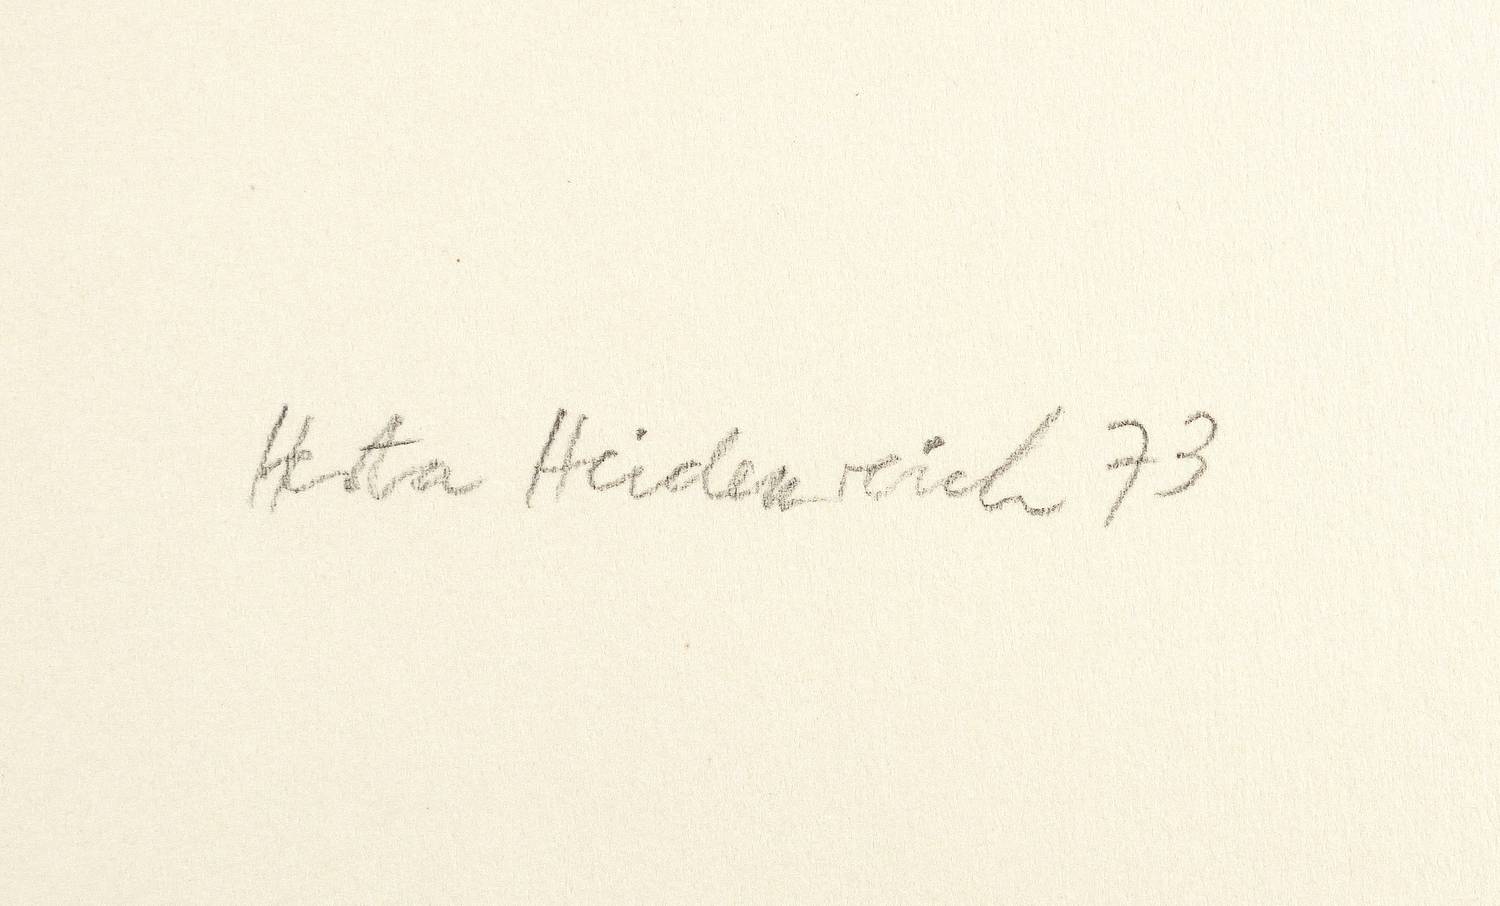 Hesta Heidenreich 73